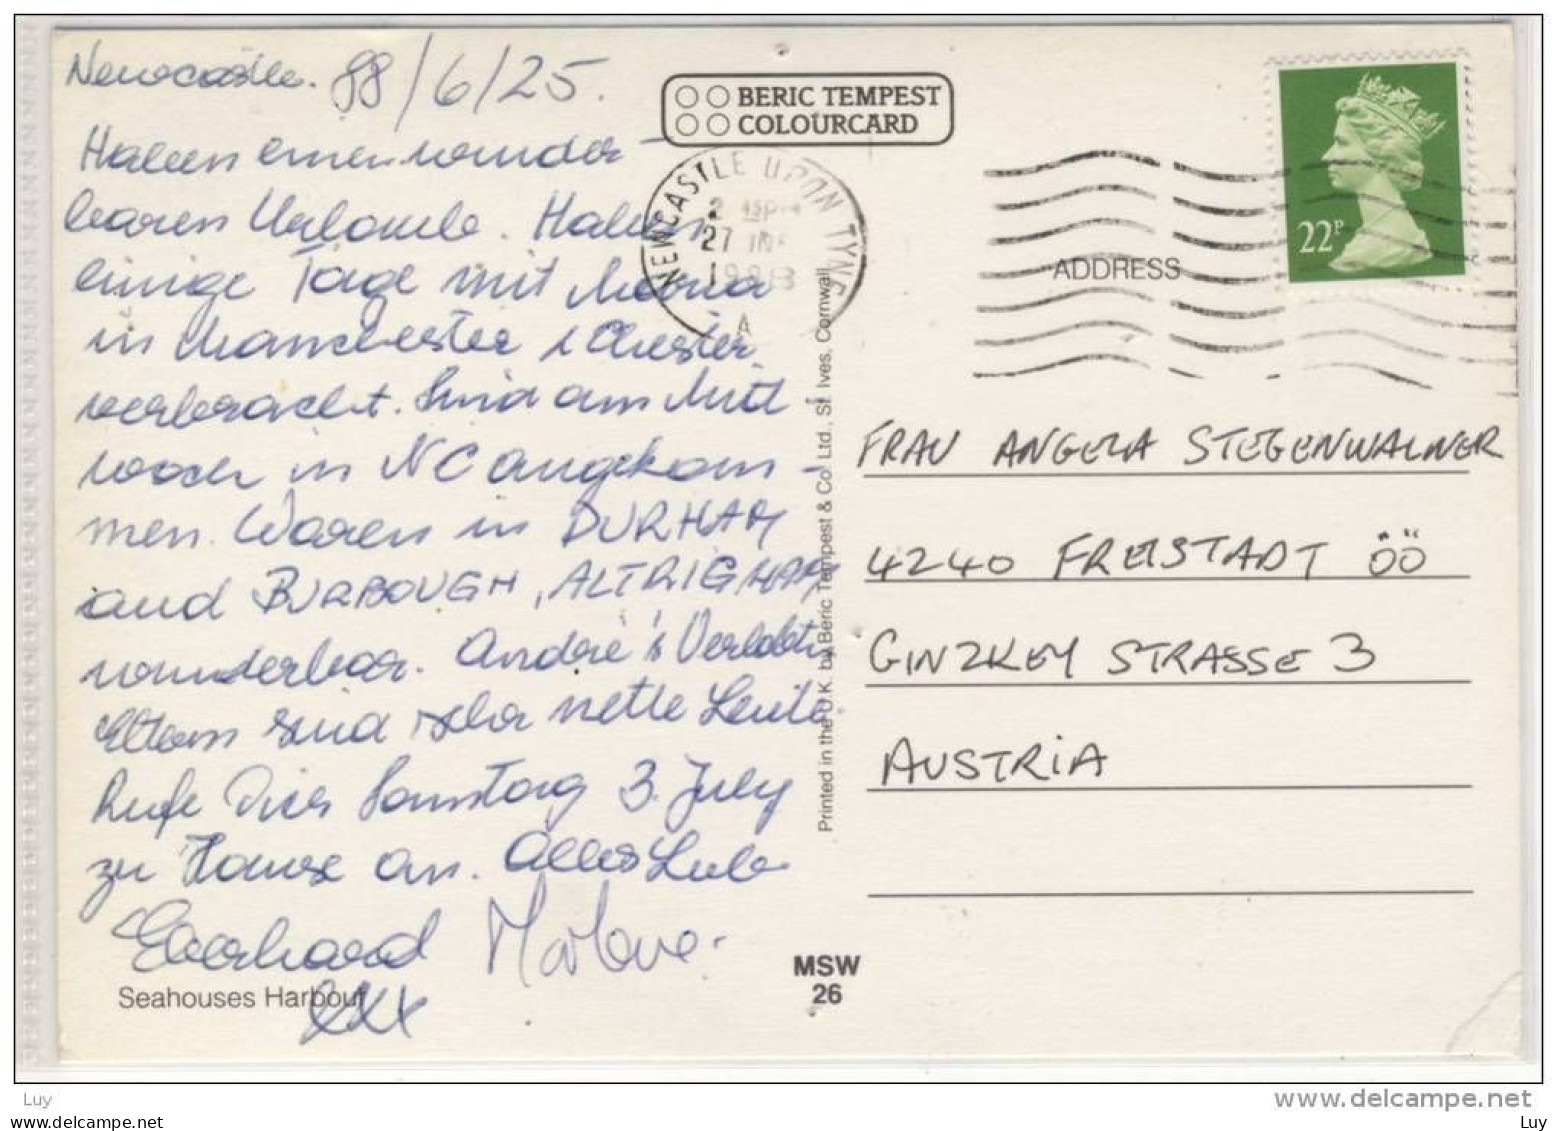 Newcastle. 88/6/25.
Haben einen wunder-
baren Urlaub. Haben
einige Tage mit Maria
in Manchester & Chester
verbracht. Sind am Mitt
woch in NC angekom-
men. Waren in DURHAM
and BURBOUGH, ALTRIGHAM
wunderbar. André's Verlobten
Eltern sind sehr nette Leute.
Rufe Dich Samstag 3. July
zu Hause an. Alles Liebe
Eberhard Marlene.
xxx
Seahouses Harbour
BERIC TEMPEST
COLOURCARD
NEWCASTLE UPON TYNE
27
1988
A
22P
ADDRESS
Printed in the U.K. by Beric Tempest & Co. Ltd., St. Ives, Cornwall.
FRAU ANGELA STEGENWALNER
4240 FREISTADT ÖÖ
GINZKEY STRASSE 3
AUSTRIA
MSW
26
www.delcampe.net
Luy
Luy